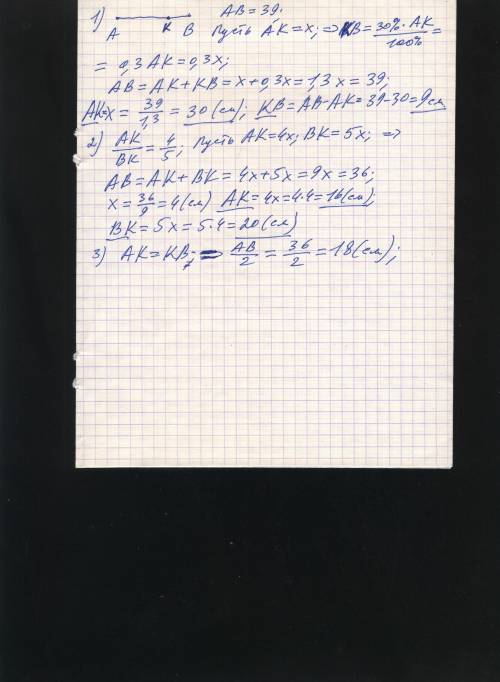 1) A K B AB = 39.
Пусть AK = x; ⇒ KB = 30% · AK / 100% =
= 0,3 AK = 0,3x;
AB = AK + KB = x + 0,3x = 1,3x = 39;
AK = x = 39/1,3 = 30 (см); KB = AB - AK = 39 - 30 = 9 см
2) AK/BK = 4/5; Пусть AK = 4x; BK = 5x; ⇒
AB = AK + BK = 4x + 5x = 9x = 36;
x = 36/9 = 4 (см) AK = 4x = 4·4 = 16 (см);
BK = 5x = 5·4 = 20 (см)
3) AK = KB; ⇒ AB/2 = 36/2 = 18 (см);